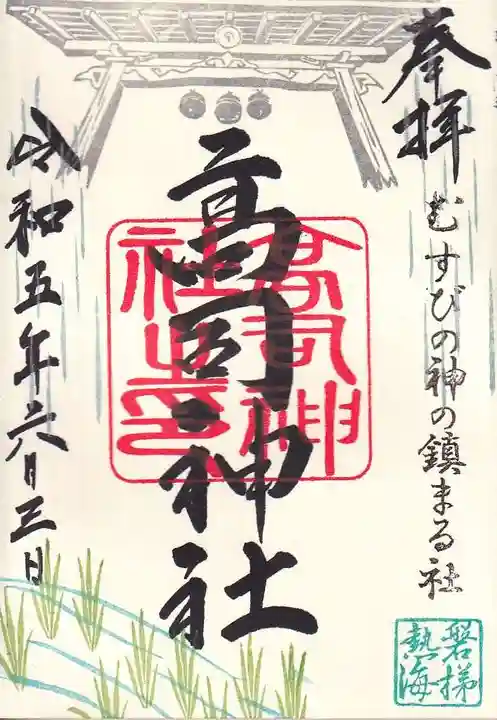 奉拝
むすびの神の鎮まる社
高司神社
高司神
社之印
令和五年六月三日
磐梯
熱海